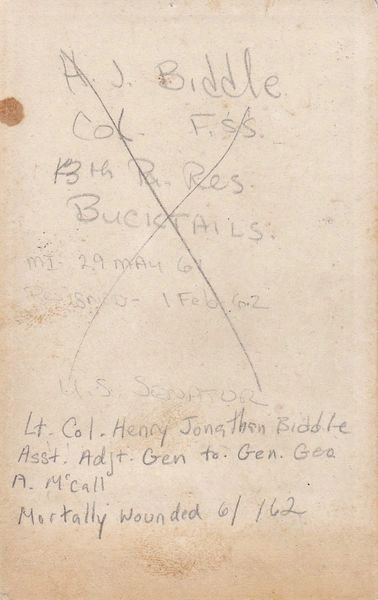 H. J. Biddle
Col. F.S.S.
13th Pa. Res.
BUCKTAILS.
MI- 29 MAY 61
Resigned - 1 Feb 62
U.S. SENATOR
Lt. Col. Henry Jonathan Biddle
Asst. Adjt. Gen to. Gen. Geo
A. McCall
Mortally Wounded 6/ /62